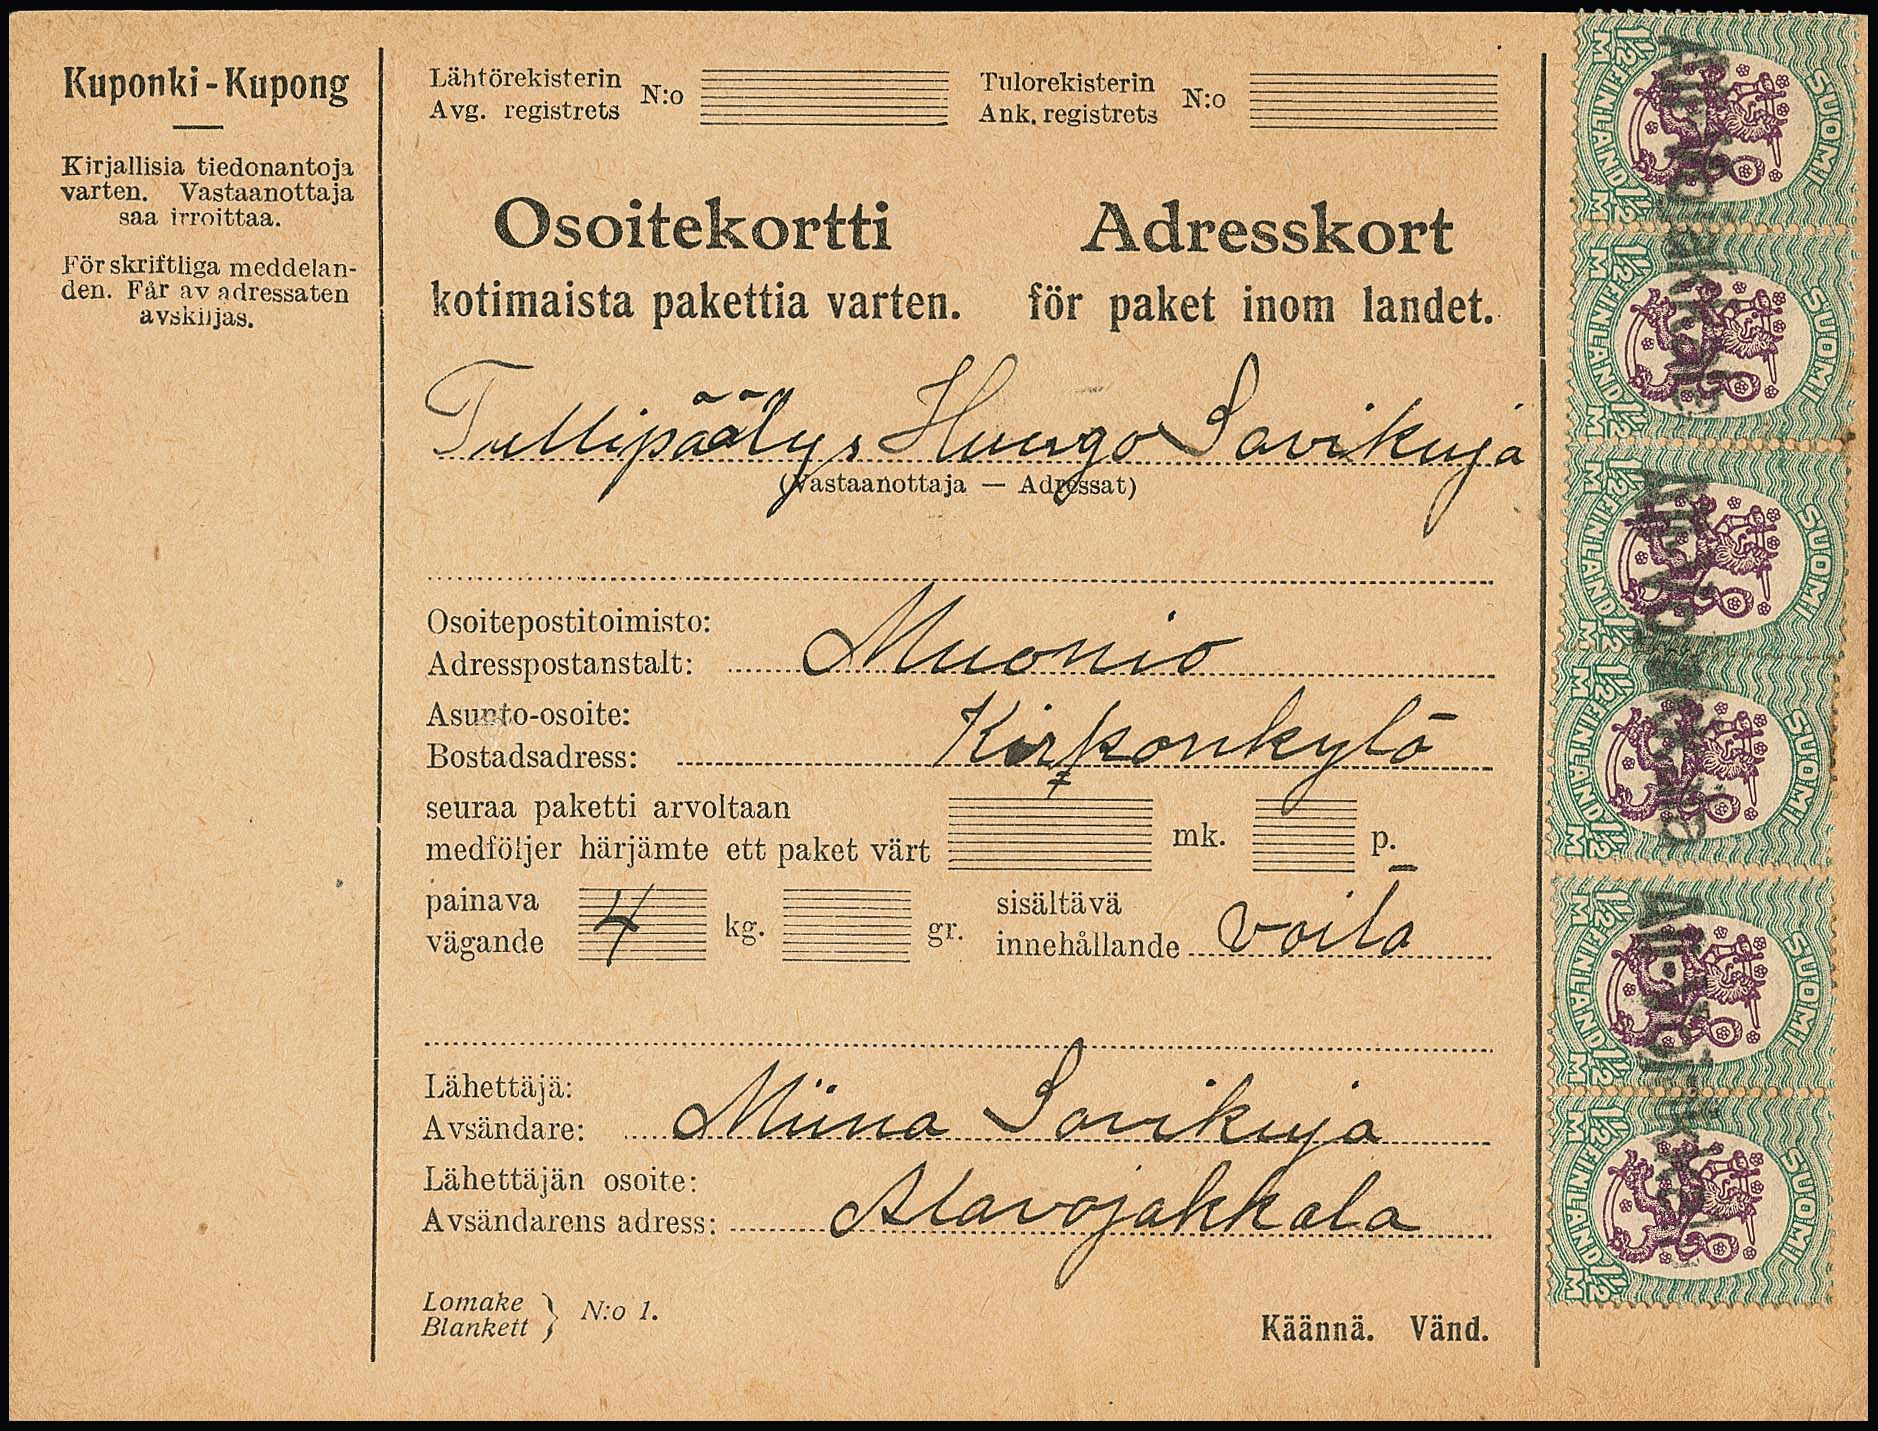 Kuponki - Kupong
Kirjallisia tiedonantoja
varten. Vastaanottaja
saa irroittaa.
För skriftliga meddelan-
den. Får av adressaten
avskiljas.
Lähtörekisterin
Avg. registrets
N:o
Tulorekisterin
Ank. registrets
N:o
Osoitekortti
kotimaista pakettia varten.
Adresskort
för paket inom landet.
Tullipäälys Huugo Savikuja
(Vastaanottaja — Adressat)
Osoitepostitoimisto:
Adresspostanstalt: Muonio
Asunto-osoite:
Bostadsadress: Kirkonkylä
seuraa paketti arvoltaan
medföljer härjämte ett paket värt mk. p.
painava
vägande 4 kg. gr.
sisältävä
innehållande voita
Lähettäjä:
Avsändare: Miina Savikuja
Lähettäjän osoite:
Avsändarens adress: Alavojakkala
Lomake
Blankett } N:o 1.
Käännä. Vänd.
SUOMI
1½ FINLAND 1½
M M
SUOMI
1½ FINLAND 1½
M M
SUOMI
1½ FINLAND 1½
M M
SUOMI
1½ FINLAND 1½
M M
SUOMI
1½ FINLAND 1½
M M
SUOMI
1½ FINLAND 1½
M M